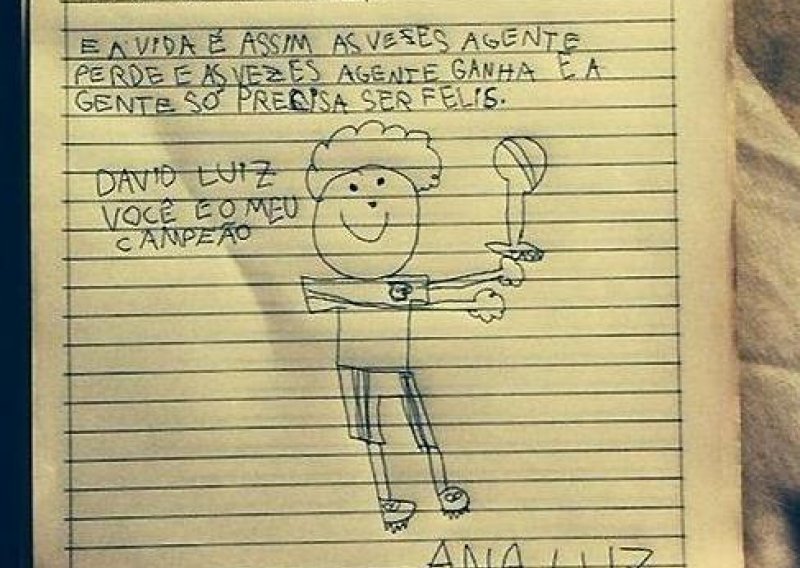 E A VIDA É ASSIM AS VESES AGENTE
PERDE E AS VEZES AGENTE GANHA E A
GENTE SÓ PRECISA SER FELIS.
DAVID LUIZ
VOCÊ E O MEU
CAMPEÃO
ANA LUZ